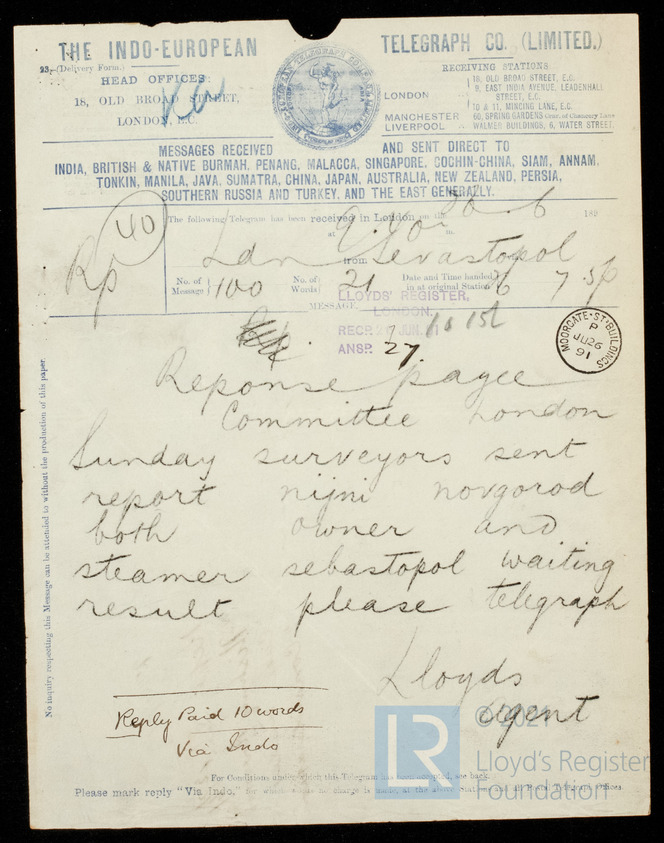 THE INDO-EUROPEAN TELEGRAPH CO. (LIMITED.)
23.-(Delivery Form.)
HEAD OFFICES
18, OLD BROAD STREET,
LONDON, E.C.
RECEIVING STATIONS
LONDON
18, OLD BROAD STREET, E.C.
9, EAST INDIA AVENUE, LEADENHALL
STREET, E.C.
10 & 11, MINCING LANE, E.C.
MANCHESTER 60, SPRING GARDENS Cnr. of Chancery Lane
LIVERPOOL WALMER BUILDINGS, 6, WATER STREET.
MESSAGES RECEIVED AND SENT DIRECT TO
INDIA, BRITISH & NATIVE BURMAH, PENANG, MALACCA, SINGAPORE, COCHIN-CHINA, SIAM, ANNAM,
TONKIN, MANILA, JAVA, SUMATRA, CHINA, JAPAN, AUSTRALIA, NEW ZEALAND, PERSIA,
SOUTHERN RUSSIA AND TURKEY, AND THE EAST GENERALLY.
40
Rp
The following Telegram has been received in London on the 26 6 189
at m.
Ldn from Sevastopol
No. of Message 100 No. of Words 21 Date and Time handed in at original Station 26 7 .5p
MESSAGE.
LLOYDS' REGISTER,
LONDON.
RECD. 27 JUN. 91
ANSD. 27.
MOORGATE-ST-BUILDINGS
P
JU26
91
Reponse payee
Committee London
Sunday surveyors sent
report nijni novgorod
both owner and
steamer sebastopol waiting
result please telegraph
Lloyds
agent
Reply Paid 10 words
Via Indo
No inquiry respecting this Message can be attended to without the production of this paper.
For Conditions under which this Telegram has been accepted, see back.
Please mark reply "Via Indo," for which no charge is made, at the above Stations and all Postal Telegraph Offices.
LR
© 2021
Lloyd's Register
Foundation